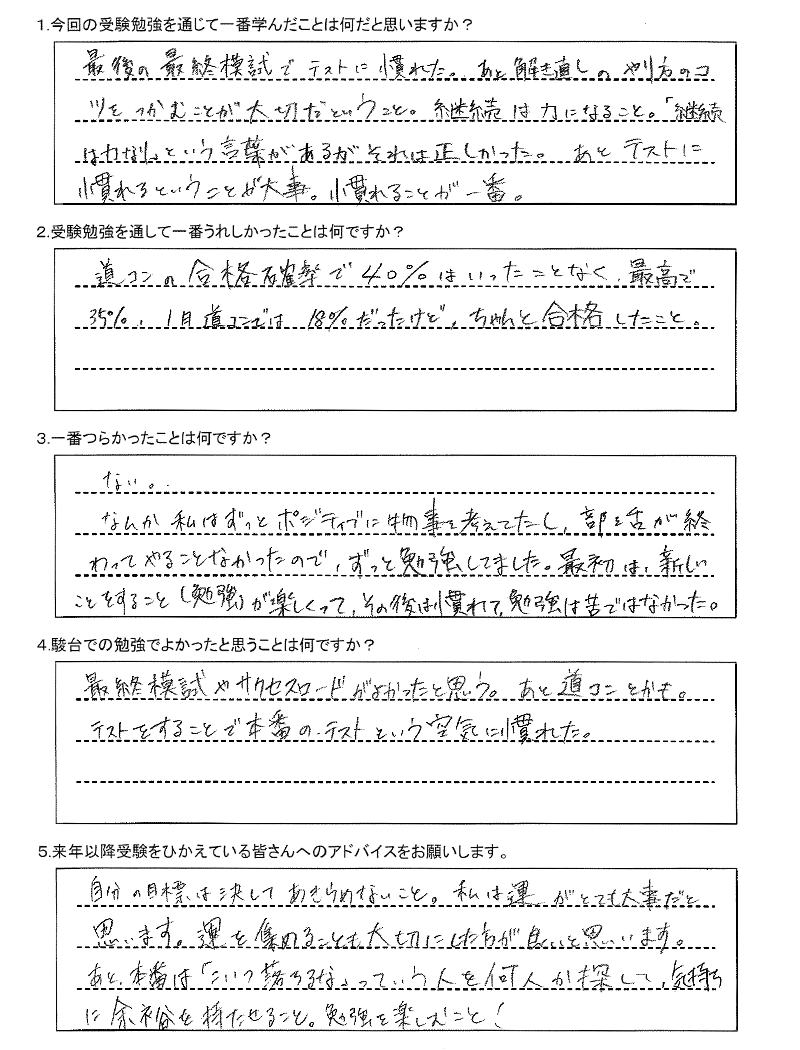 1.今回の受験勉強を通じて一番学んだことは何だと思いますか？
最後の最終模試でテストに慣れた。あと解き直しのやり方のコ
ツをつかむことが大切だということ。継続は力になること。「継続
は力なり」という言葉があるがそれは正しかった。 あとテストに
慣れるということが大事。慣れることが一番。
2.受験勉強を通して一番うれしかったことは何ですか？
道コンの合格確率で40%はいったことなく、最高で
35%、1月道コンでは18%だったけど、ちゃんと合格したこと。
3.一番つらかったことは何ですか？
ない。
なんか私はずっとポジティブに物事を考えてたし、部活が終
わってやることなかったので、ずっと勉強してました。最初は、新しい
ことをすること(勉強)が楽しくって、その後は慣れて、勉強は苦ではなかった。
4.駿台での勉強でよかったと思うことは何ですか？
最終模試やサクセスロードがよかったと思う。あと道コンとかも。
テストをすることで本番のテストという空気に慣れた。
5.来年以降受験をひかえている皆さんへのアドバイスをお願いします。
自分の目標は決してあきらめないこと。私は運がとても大事だと
思います。運を集めることも大切にした方が良いと思います。
あと、本番は「こいつ落ちるな」っていう人を何人か探して、気持ち
に余裕を持たせること。勉強を楽しむこと！